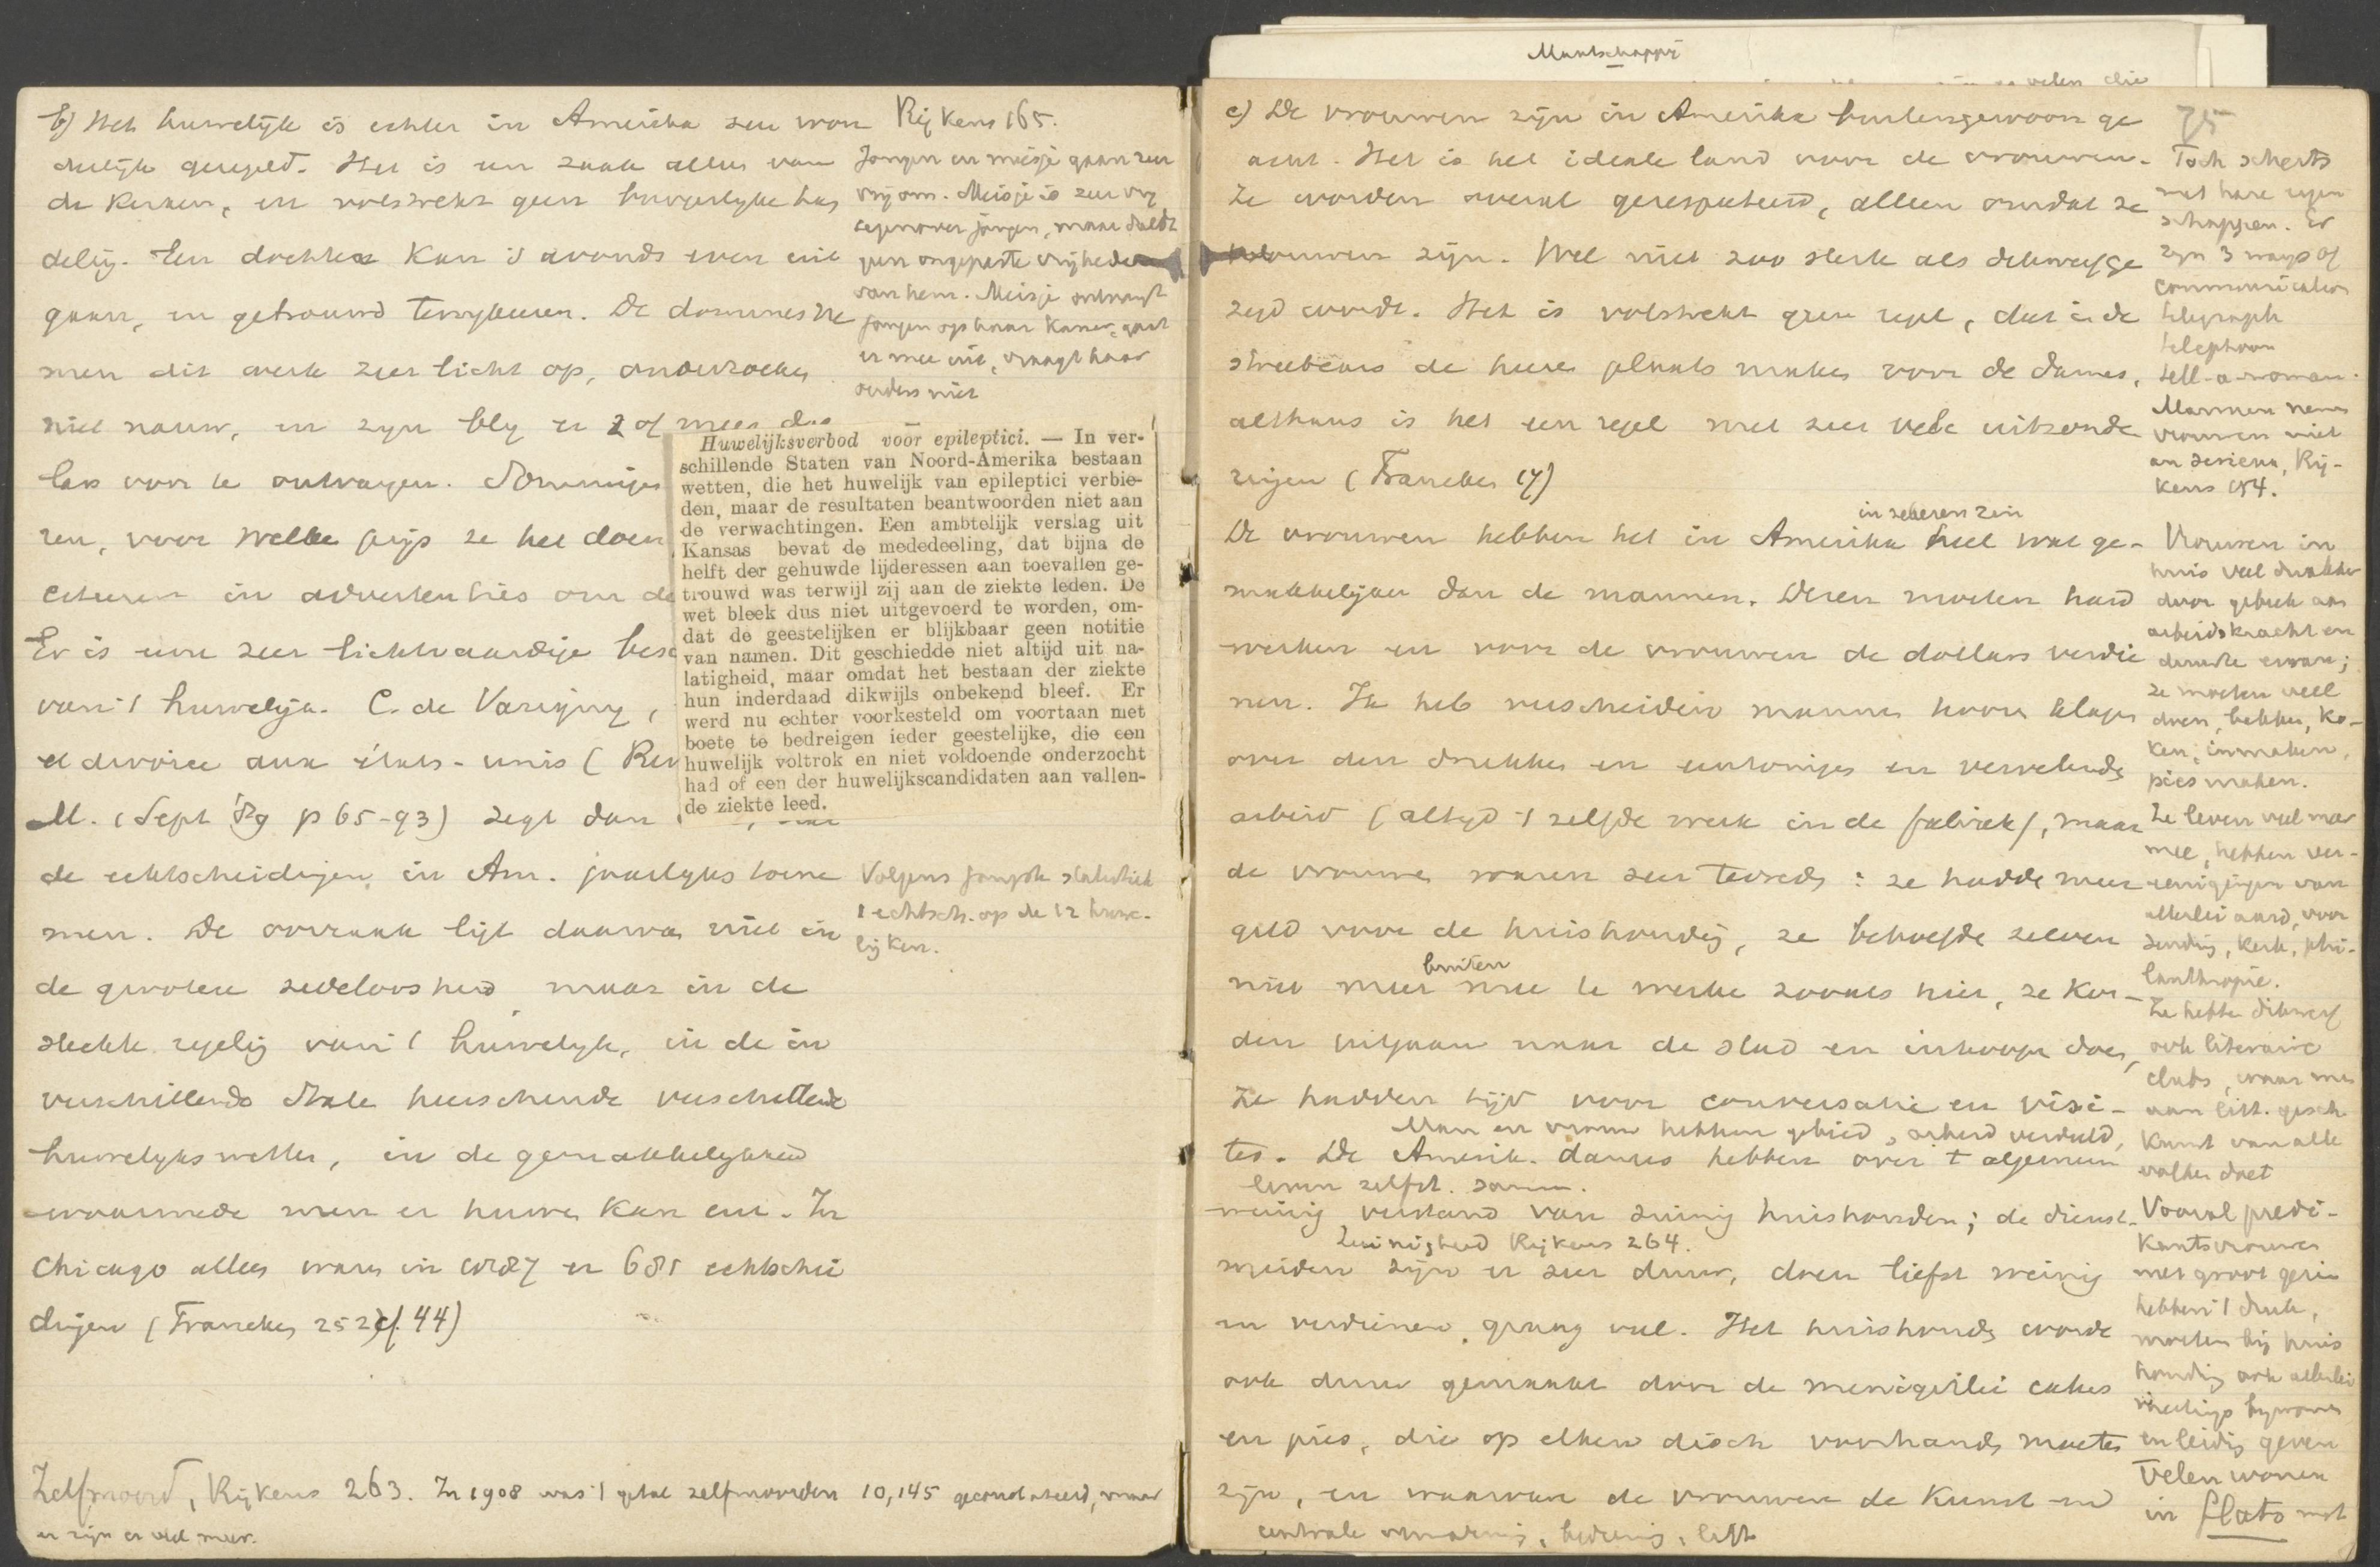 Maatschappij
b) Het huwelijk is echter in Amerika zeer won
derlijk geregeld. Het is een zaak alleen van
de kerken, en volstrekt geen burgerlyke han
deling. Een dochter kan 's avonds even uit
gaan, en getrouwd terugkeeren. De dominés ne
men dit werk zeer licht op, onderzoeken
niet nauw, en zyn bly er 2 of meer dol
lars voor te ontvangen. Sommigen
ren, voor welke prijs ze het doen
in advertenties om de
Er is eene zeer lichtvaardige besc
van 't huwelyk. C. de Varigny,
et divorce aux états-unis (Rev
M. (Sept '89 p 65-93) zegt dan
de echtscheidingen in Am. jaarlyks toene
men. De oorzaak ligt daarvan niet in
de grootere zedeloosheid maar in de
slechte regeling van 't huwelyk, in de in
verschillende Staten heerschende verschillende
huwelykswetten, in de gemakkelykheid
waarmede men er huwen kan enz. In
Chicago alleen waren in 1887 er 681 echtschei
dingen (Francken 252 cf. 44)
Zelfmoord, Rijkens 263. In 1908 was 't getal zelfmoorden 10,145 geconstateerd, maar
er zijn er veel meer.
Rijkens 165.
Jongen en meisje gaan zeer
vrij om. Meisje is zeer vrij
tegenover jongen, maar duldt
geen ongepaste vrijheden
van hem. Meisje ontvangt
jongen op haar kamer, gaat
er mee uit, vraagt haar
ouders niet
Huwelijksverbod voor epileptici. — In ver-
schillende Staten van Noord-Amerika bestaan
wetten, die het huwelijk van epileptici verbie-
den, maar de resultaten beantwoorden niet aan
de verwachtingen. Een ambtelijk verslag uit
Kansas bevat de mededeeling, dat bijna de
helft der gehuwde lijderessen aan toevallen ge-
trouwd was terwijl zij aan de ziekte leden. De
wet bleek dus niet uitgevoerd te worden, om-
dat de geestelijken er blijkbaar geen notitie
van namen. Dit geschiedde niet altijd uit na-
latigheid, maar omdat het bestaan der ziekte
hun inderdaad dikwijls onbekend bleef. Er
werd nu echter voorkesteld om voortaan met
boete te bedreigen ieder geestelijke, die een
huwelijk voltrok en niet voldoende onderzocht
had of een der huwelijkscandidaten aan vallen-
de ziekte leed.
Volgens jongste statistiek
1 echtsch. op de 12 huwe-
lijken.
c) De vrouwen zijn in Amerika buitengewoon ge
acht. Het is het ideale land voor de vrouwen.
Ze worden overal gerespecteerd, alleen omdat ze
vrouwen zijn. Wel niet zoo sterk als dikwerf ge
zegd wordt. Het is volstrekt geen regel, dat in de
streetcars de heeren plaats maken voor de dames,
althans is het een regel met zeer vele uitzonde
ringen (Francken 17)
in zekeren zin
De vrouwen hebben het in Amerika heel wat ge-
makkelijker dan de mannen. Dezen moeten hard
werken en voor de vrouwen de dollars verdie
nen. Ik heb verscheiden mannen hooren klagen
over den drukken en eentonigen en vervelenden
arbeid (altyd 't zelfde werk in de fabriek), maar
de vrouwen waren zeer tevreden: ze hadden meer
geld voor de huishouding, ze behoefden zelven
buiten
niet meer mee te werken zooals hier, ze kon-
den uitgaan naar de stad en inkoopen doen,
Ze hadden tijd voor conversatie en visi-
Man en vrouw hebben gebied v. arbeid verdeeld,
tes. De Amerik. dames hebben over 't algemeen
leven zelfst. samen.
weinig verstand van zuinig huishouden; de dienst-
Zuinigheid Rijkens 264.
meiden zijn er zeer duur, doen liefst weinig
en verdienen graag veel. Het huishouden wordt
ook duur gemaakt door de menigerlei cakes
en pies, die op elken disch voorhanden moeten
zijn, en waarvan de vrouwen de kunst
centrale verwarming, bediening, lift
75
Toch scherts
met hare eigen
schappen. Er
zyn 3 ways of
communication
telegraph
telephoon
tell-a-woman.
Mannen nemen
vrouwen niet
au serieux, Rij-
kens 154.
Vrouwen in
huis veel drukker
door gebrek aan
arbeidskracht en
dienstb.
ze moeten veel
doen, bakken, ko-
ken, inmaken,
pies maken.
Ze leven veel meer
mee, hebben ver-
eenigingen van
allerlei aard, voor
zending, kerk, phi-
lanthropie.
Ze hebben dikwerf
ook literaire
clubs, waar men
aan litt. gesch.
kunst van alle
volken doet
Vooral predi-
kantsvrouwen
met groot gezin
hebben 't druk,
moeten bij huis
houding ook allerlei
meetings bywonen
en leiding geven
Velen wonen
in flats met